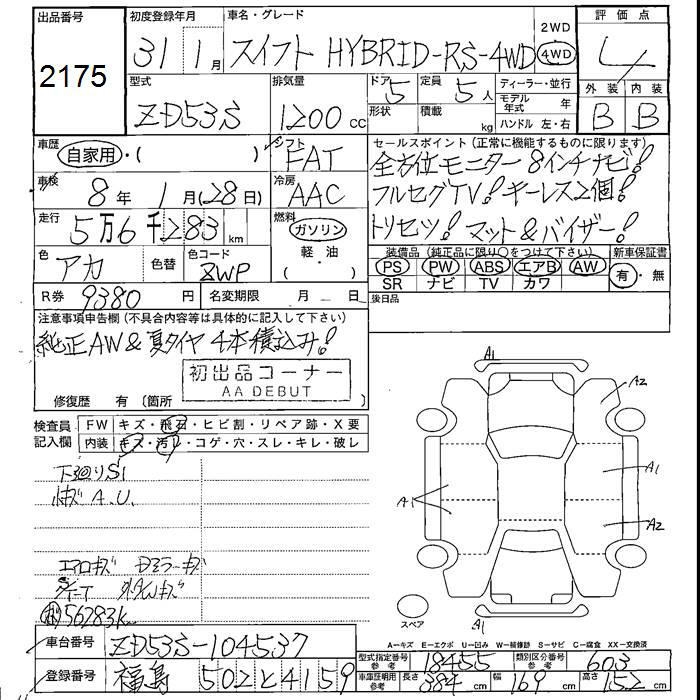 出品番号
2175
初度登録年月
31 1月
車名・グレード
スイフト HYBRID-RS-4WD
2WD
4WD
評価点
4
型式
ZD53S
排気量
1200 cc
ドア
5
定員
5 人
形状
積載
kg
ディーラー・並行
モデル年式
年
ハンドル 左・右
外装
内装
B
B
車歴
自家用・( )
シフト
FAT
車検
8年 1月(28日)
冷房
AAC
走行
5万6千283 km
燃料
ガソリン
軽・油
・( )
色
アカ
色替
色コード
ZWP
R券
9380 円
名変期限
月 日
セールスポイント(正常に機能するものに限ります)
全方位モニター 8インチナビ!
フルセグTV! キーレス2個!
トリセツ! マット&バイザー!
装備品(純正品に限り○をつけて下さい)
PS
PW
ABS
エアB
AW
SR
ナビ
TV
カワ
新車保証書
有・無
後日品
注意事項申告欄(不具合内容等は具体的に記入して下さい)
純正AW&夏タイヤ 4本積込み!
初出品コーナー
AA DEBUT
修復歴 有 〔箇所 〕
検査員記入欄
FW キズ・飛石・ヒビ割・リペア跡・X要
内装 キズ・汚れ・コゲ・穴・スレ・キレ・破レ
下廻りS1
小キズ A.U.
エアロキズ Dミラーキズ
56283k
A1
A2
A1
A1
A2
A1
スペア
車台番号
ZD53S-104537
登録番号
福島 502 と 4159
A=キズ E=エクボ U=凹み W=補修跡 S=サビ C=腐食 XX=交換済
型式指定番号
参考
18455
類別区分番号
参考
603
車庫証明用
参考
長さ
384 cm
幅
169 cm
高さ
152 cm